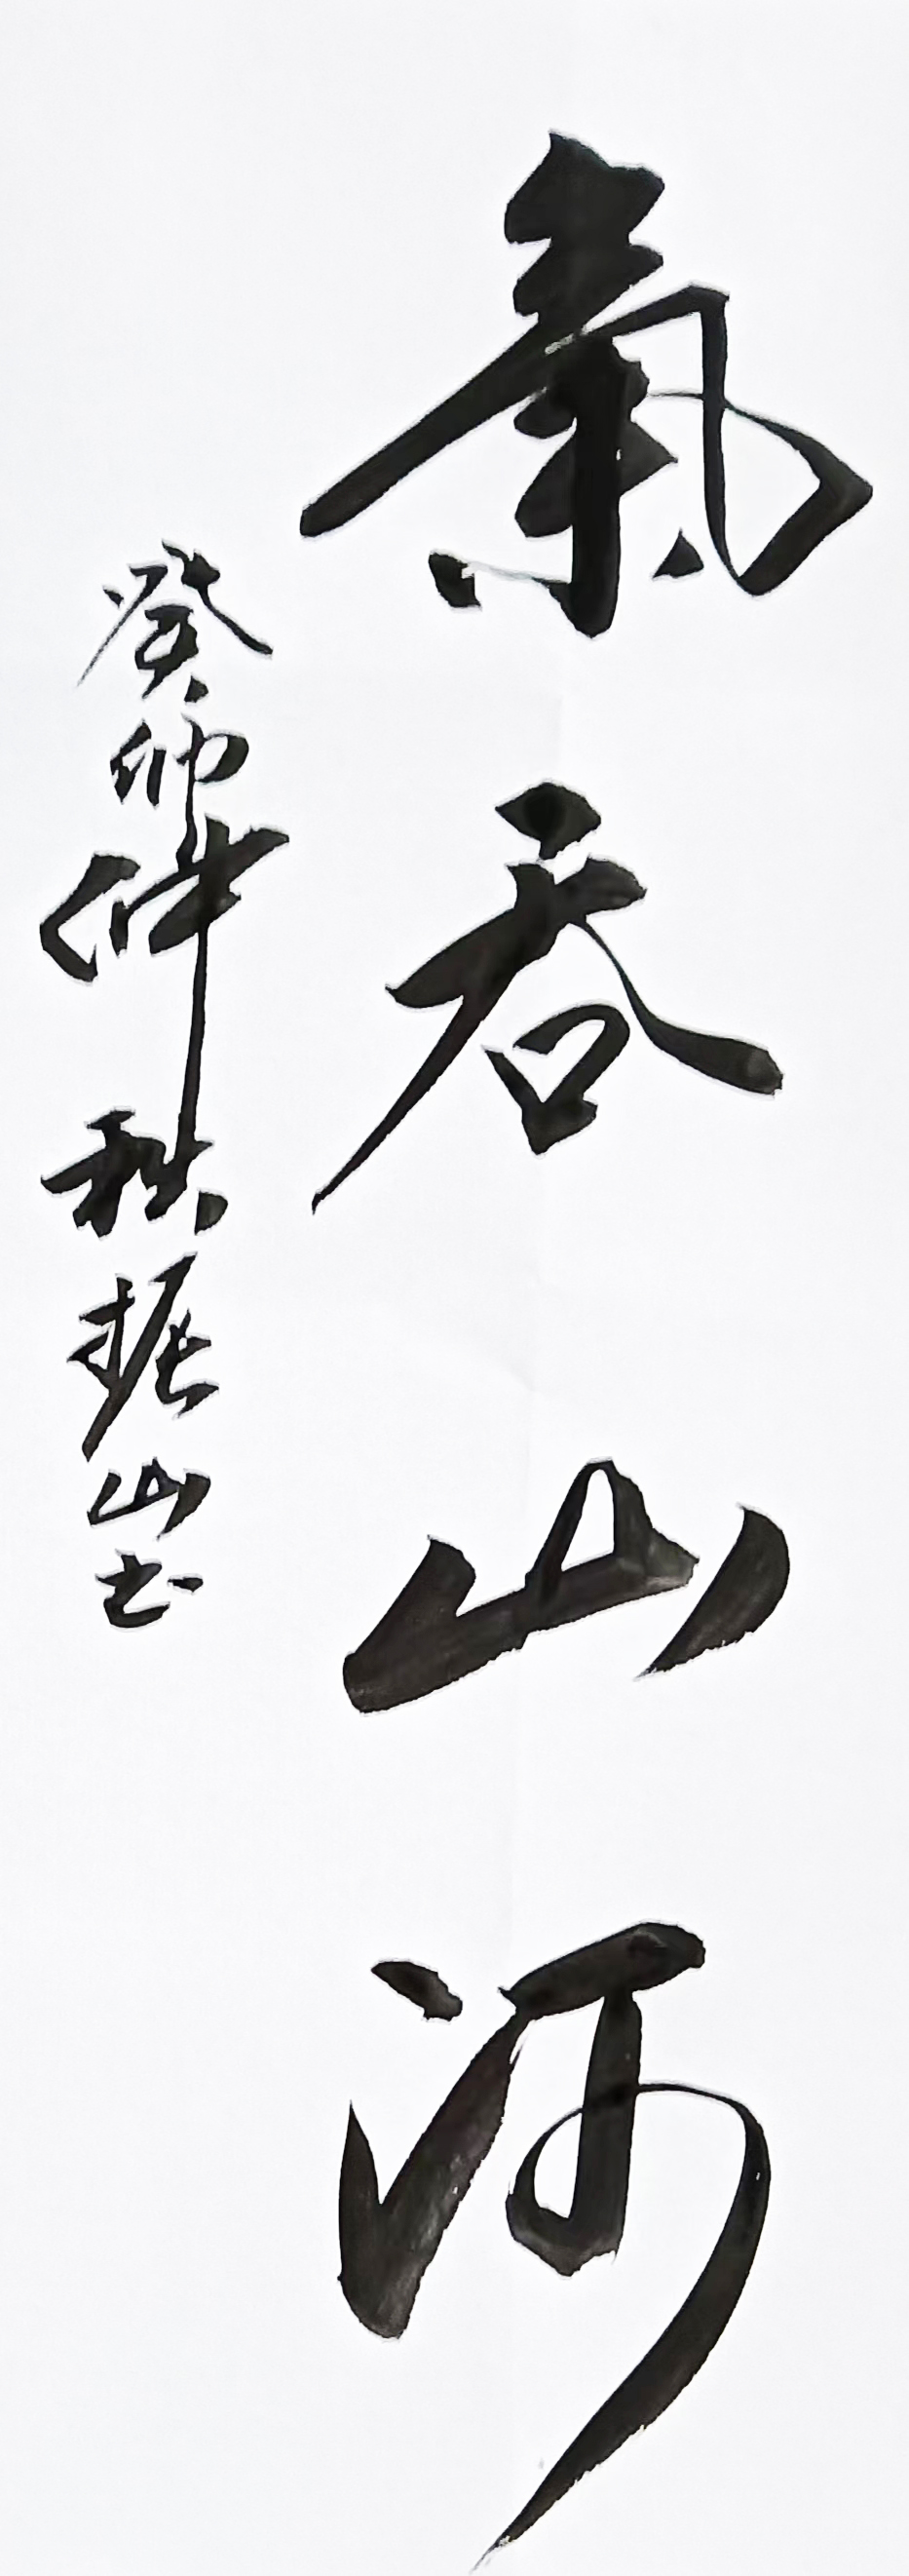 氣吞山河
癸卯仲秋振山书